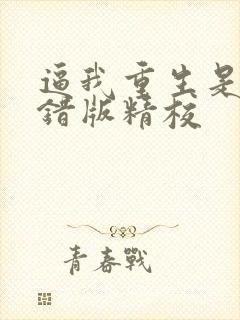 逼我重生是
错版精校
青春戰